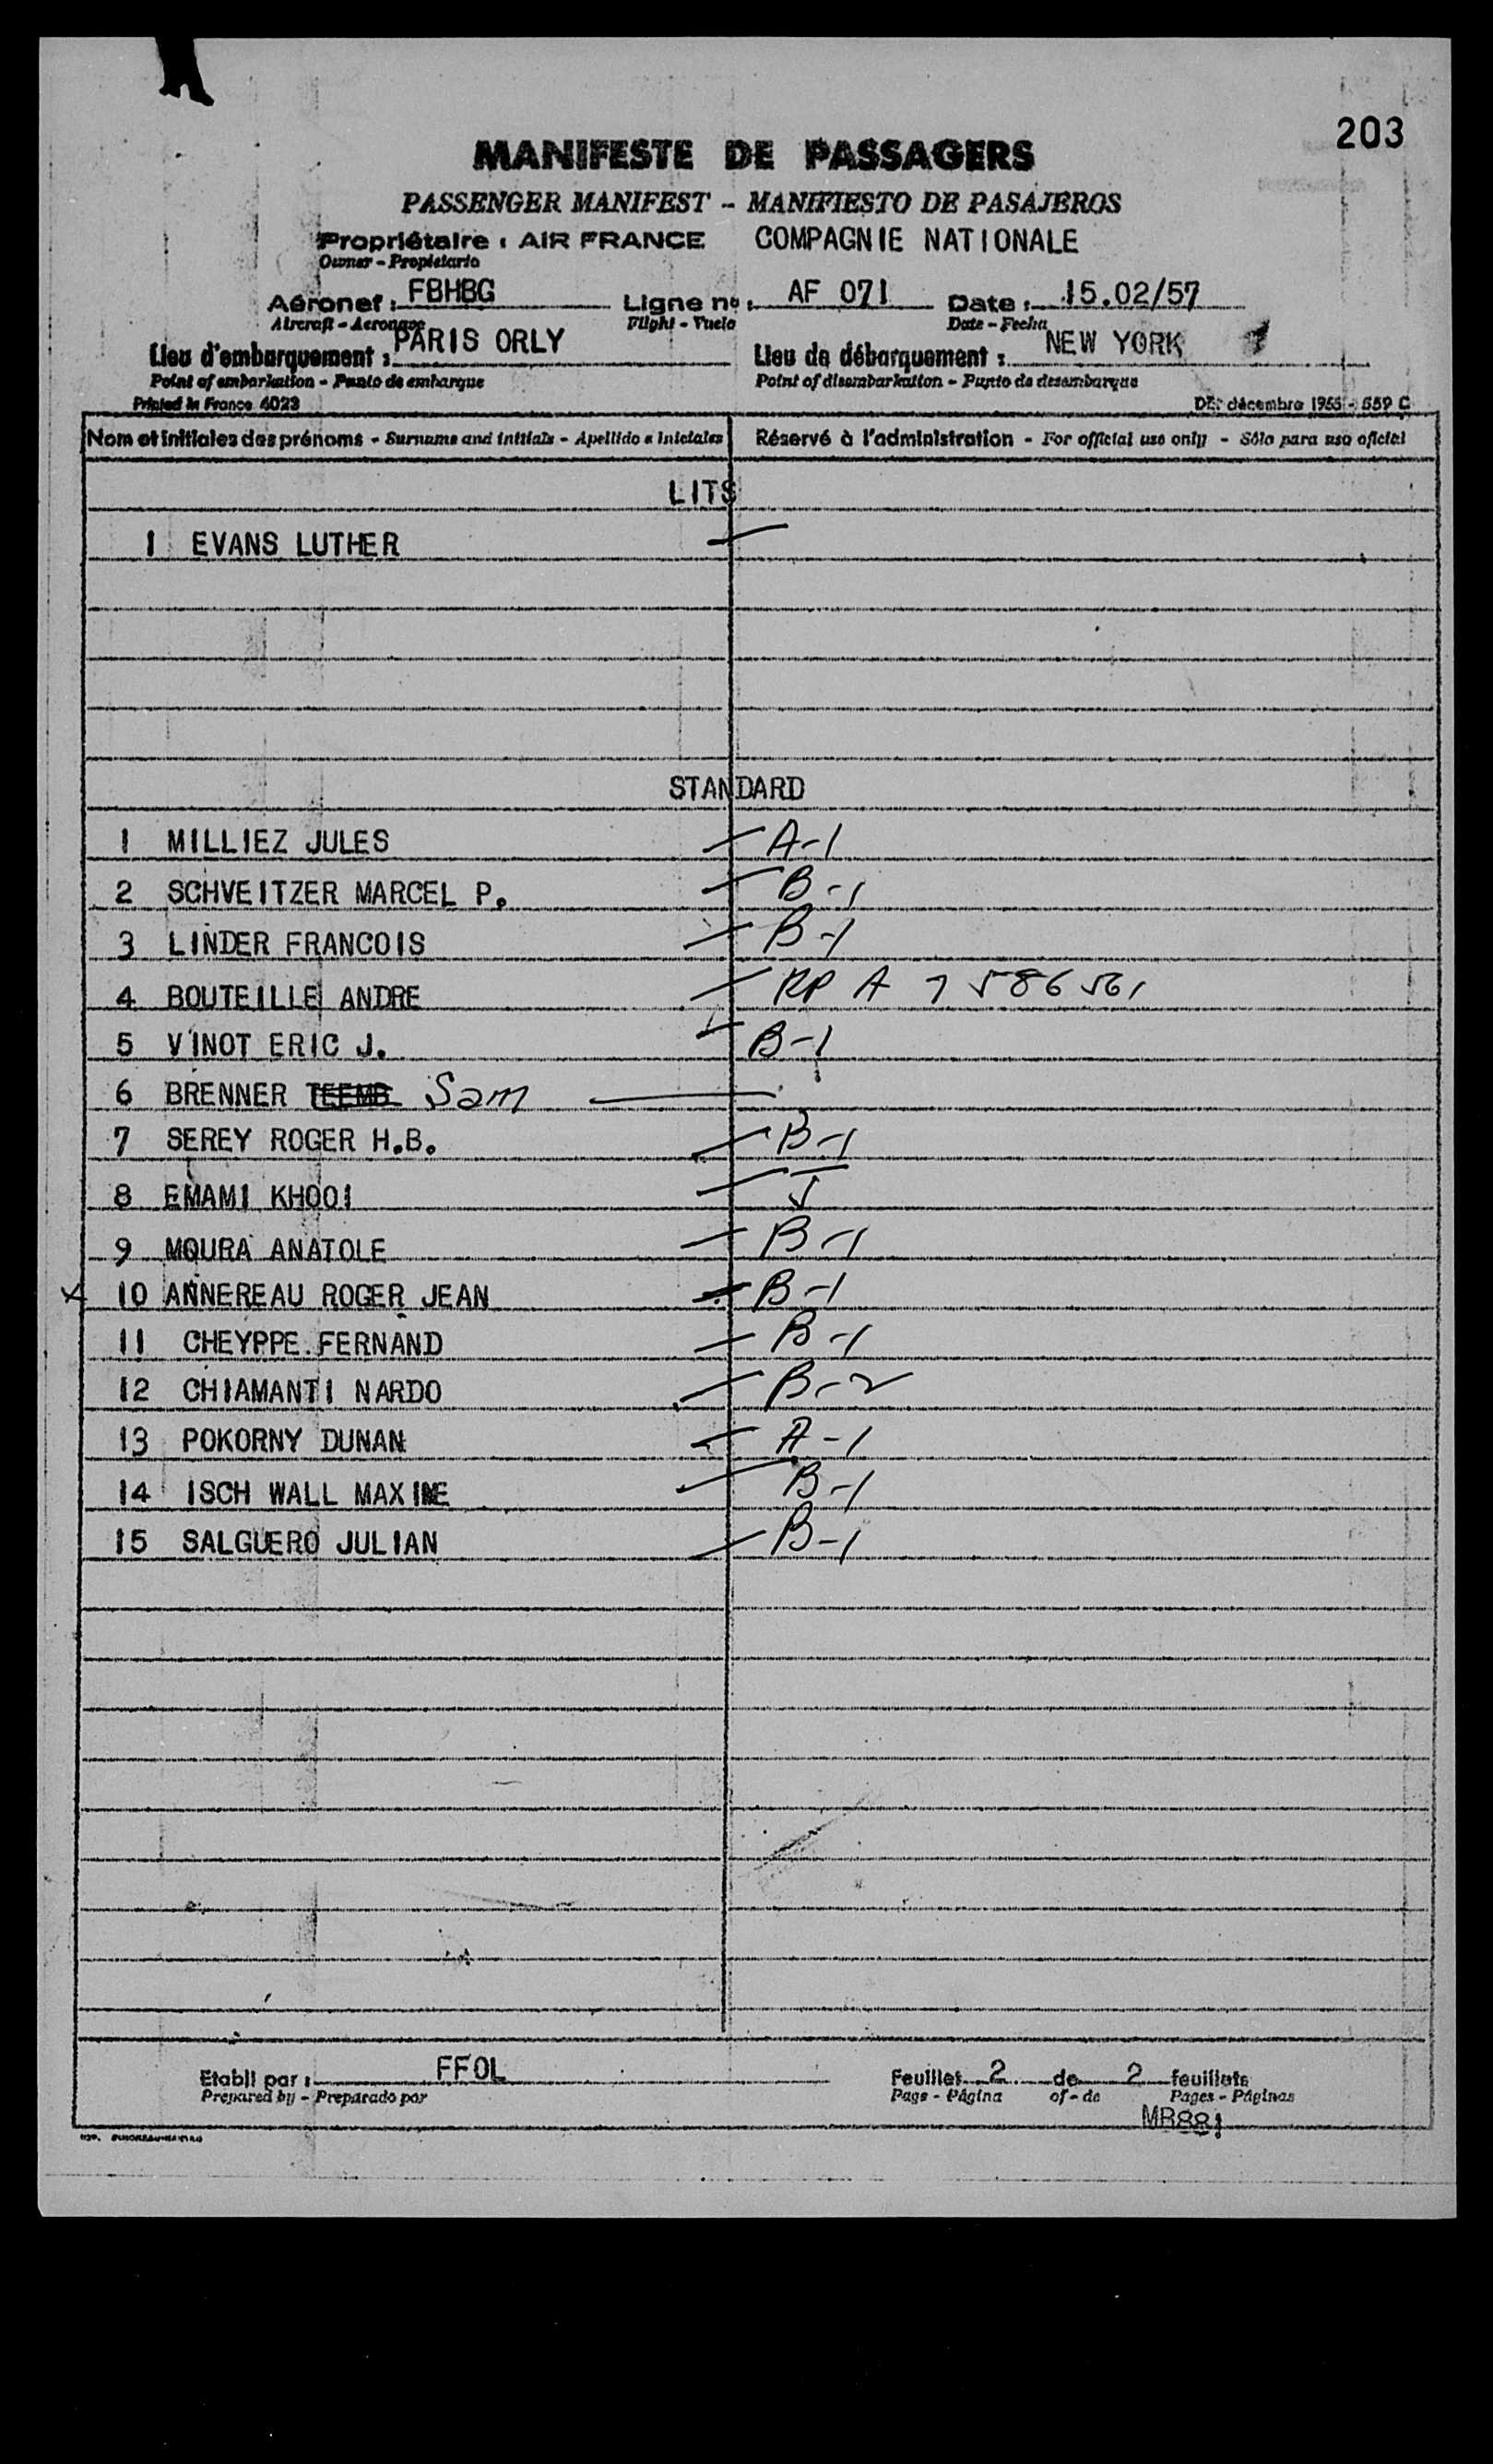 203
MANIFESTE DE PASSAGERS
PASSENGER MANIFEST - MANIFIESTO DE PASAJEROS
Propriétaire : AIR FRANCE COMPAGNIE NATIONALE
Owner - Propietario
Aéronef : FBHBG Ligne no : AF 071 Date : 15.02/57
Aircraft - Aeronave Flight - Vuelo Date - Fecha
Lieu d'embarquement : PARIS ORLY Lieu de débarquement : NEW YORK
Point of embarkation - Punto de embarque Point of disembarkation - Punto de desembarque
Printed in France 6023 DE. décembre 1955 - 559 C
Nom et initiales des prénoms - Surname and initials - Apellido e Iniciales Réservé à l'administration - For official use only - Sólo para uso oficial
LITS
1 EVANS LUTHER
STANDARD
1 MILLIEZ JULES A-1
2 SCHVEITZER MARCEL P. B-1
3 LINDER FRANCOIS B-1
4 BOUTEILLE ANDRE RP A 7 586 561
5 VINOT ERIC J. B-1
6 BRENNER Sam
7 SEREY ROGER H.B. B-1
8 EMAMI KHOOI J
9 MOURA ANATOLE B-1
X 10 ANNEREAU ROGER JEAN B-1
11 CHEYPPE FERNAND B-1
12 CHIAMANTI NARDO B-2
13 POKORNY DUNAN A-1
14 ISCH WALL MAXIME B-1
15 SALGUERO JULIAN B-1
Etabli par : FFOL Feuillet 2 de 2 feuillets
Prepared by - Preparado por Page - Página of - de Pages - Páginas
MR881